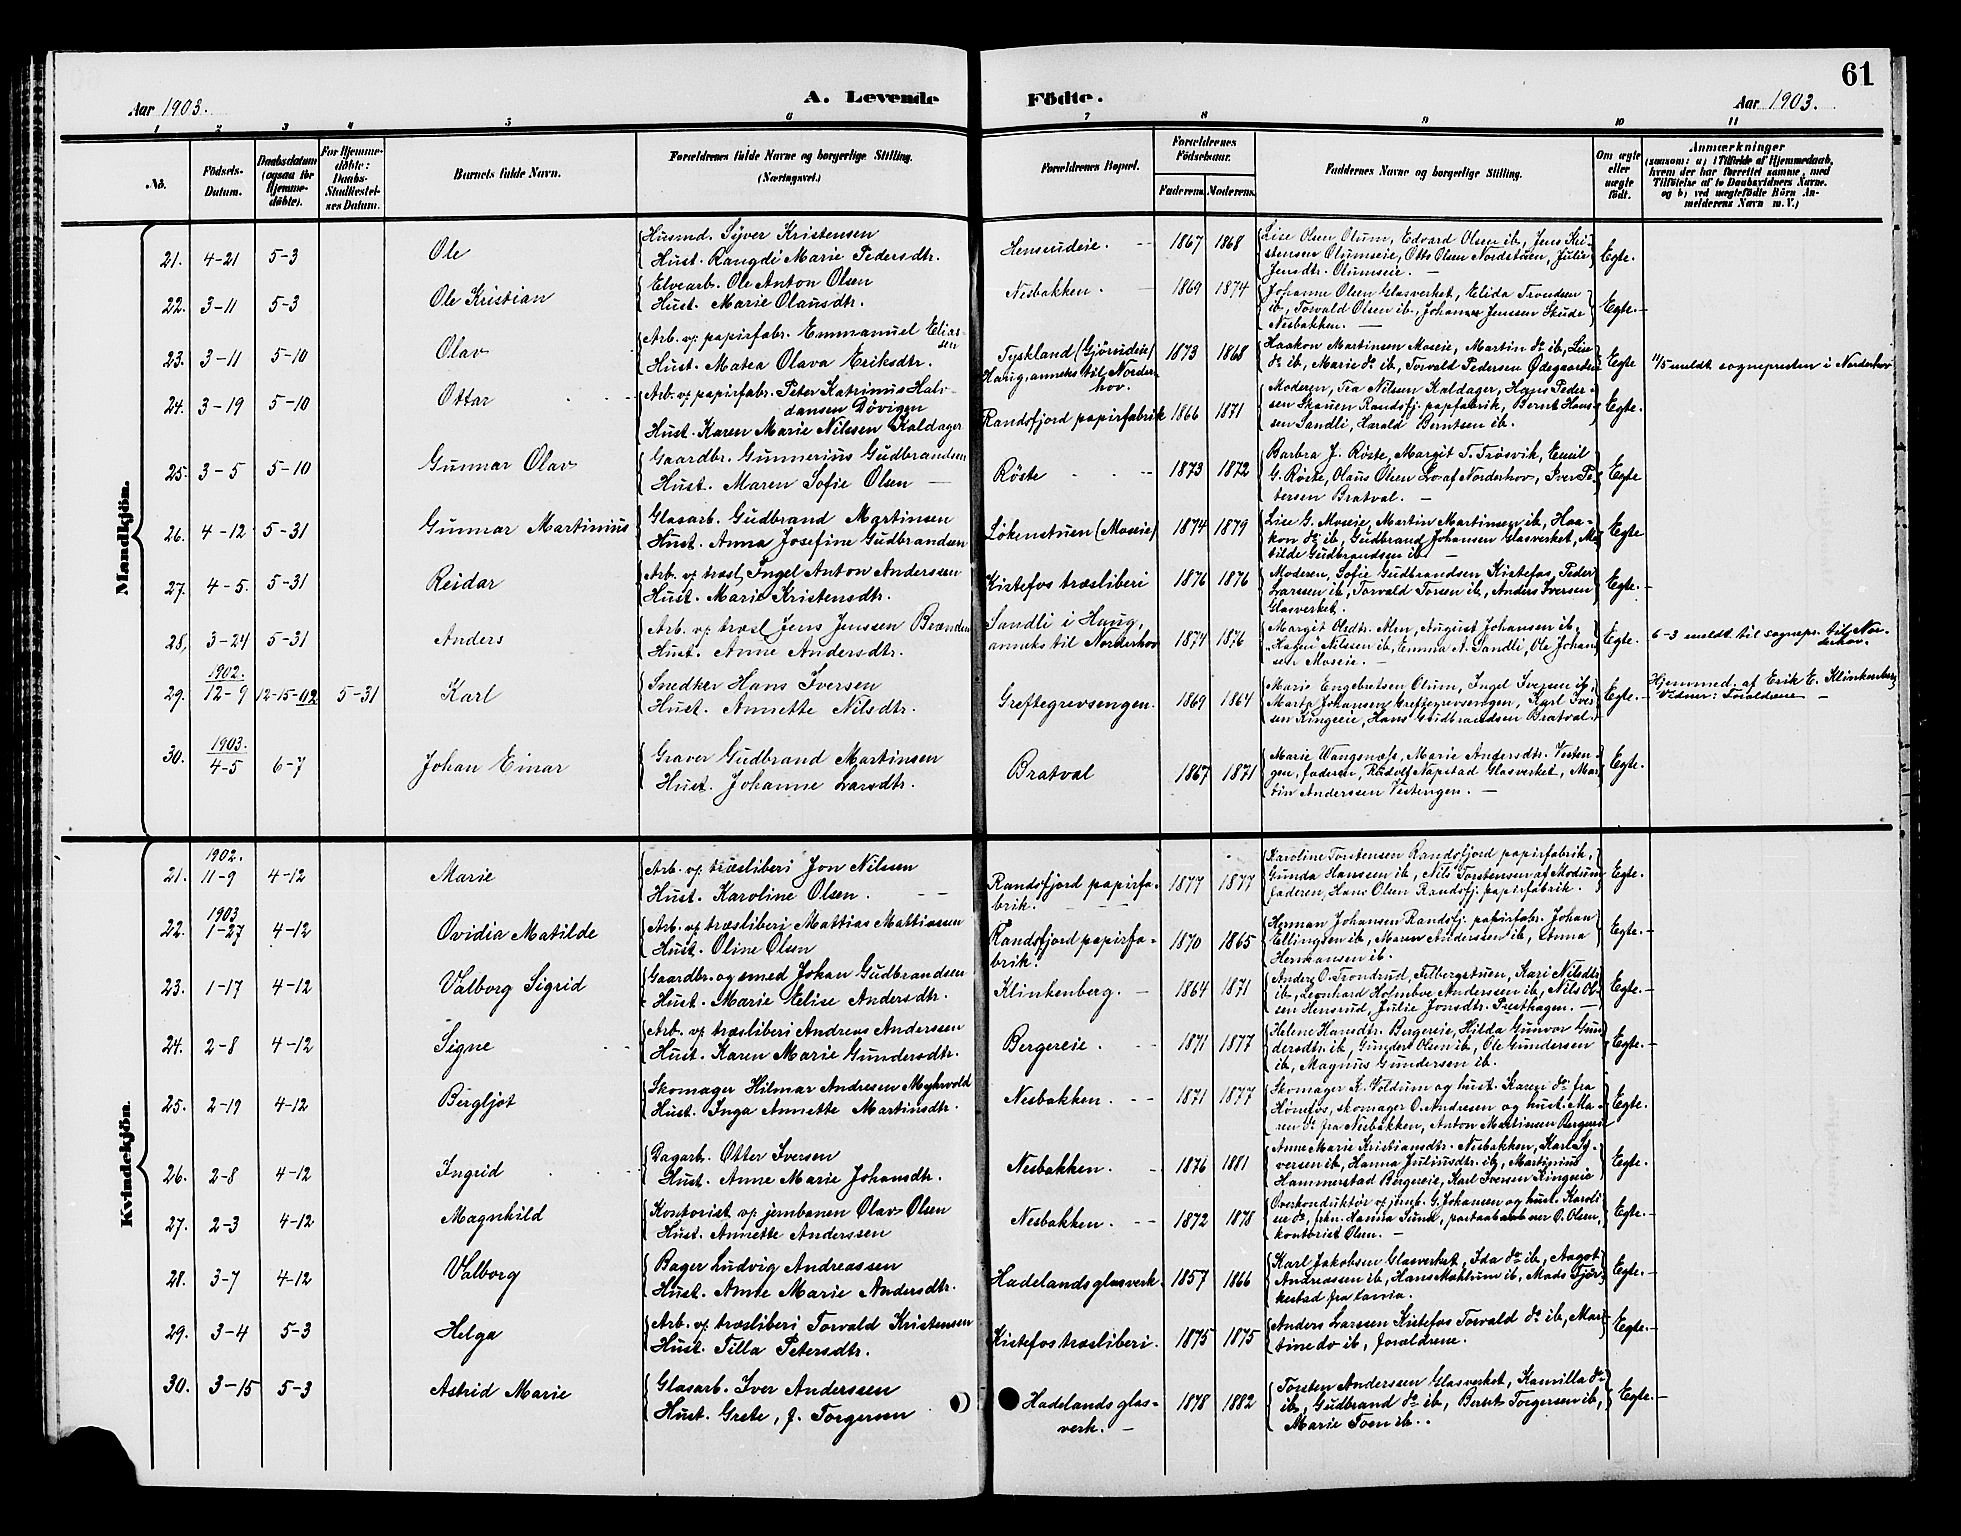 61
Aar 1903.
A. Levende Födte.
Aar 1903.
1 2 3 4 5 6 7 8 9 10 11
No.
Födsels-Datum.
Daabsdatum (ogsaa for Hjemme-döbte).
For Hjemme-döbte: Daabs-Stadfæstel-ses Datum.
Barnets fulde Navn.
Forældrenes fulde Navne og borgerlige Stilling. (Næringsvei.)
Forældrenes Bopæl.
Forældrenes Födselsaar.
Faderens. Moderens.
Faddernes Navne og borgerlige Stilling.
Om ægte eller uægte födt.
Anmærkninger
(saasom: a) i Tilfælde af Hjemmedaab,
hvem der har forrettet samme, med
Tilföielse af to Daabsvidners Navne.
og b) ved uægtefödte Börn An-
melderens Navn m. V.)
Mandkjön.
21. 4-21 5-3 Ole
Husmd. Syver Kristensen
Hust. Rangdi Marie Pedersdtr.
Henserudeie. 1867 1868
Lise Olsen Olum, Edvard Olsen ib, Jens Kri-
stensen Olumseie, Otto Olsen Nordstøen, Julie
Jensdtr. Olumseie.
Egte.
22. 3-11 5-3 Ole Kristian
Elvearb. Ole Anton Olsen
Hust. Marie Olausdtr.
Nesbakken. 1869 1874
Johanne Olsen Glasverket, Elida Trondsen
ib, Torvald Olsen ib, Johan Jenssen Skude
Nesbakken.
Egte.
23. 3-11 5-10 Olav
Arb. v. papirfabr. Emmanuel Elias-
sen
Hust. Matea Olava Eriksdtr.
Tyskland (Gjørudeie)
Haug, anneks til Norder-
hov.
1873 1868
Haakon Martinsen Moseie, Martin do ib, Lise
do ib, Marie do ib, Torvald Pedersen Ødegaarden
Egte
11/5 meldt sognepresten i Norderhov
24. 3-19 5-10 Ottar
Arb. v. papirfabr. Peter Katrinus Halv-
dansen Døvigen
Hust. Karen Marie Nilssen Kaldager
Randsfjord papirfabrik 1866 1871
Moderen, Tea Nilsen Kaldager, Hans Peder-
sen Skauen Randsfj. papfabrik, Bernt Hans-
sen Sandli, Harald Berntsen ib.
Egte.
25. 3-5 5-10 Gunnar Olav
Gaardbr. Gunnerius Gudbrandsen
Hust. Maren Sofie Olsen
Røste 1873 1872
Barbra J. Røste, Margit T. Trøsvik, Emil
G. Røste, Olaus Olsen Lo af Norderhov, Iver Pe-
dersen Bratval.
Egte
26. 4-12 5-31 Gunnar Martinius
Glasarb. Gudbrand Martinsen
Hust. Anna Josefine Gudbrandsen
Løkenstuen (Moseie) 1874 1879
Lise G. Moseie, Martin Martinsen ib, Haa-
kon do ib, Gudbrand Johansen Glasverket, Ma-
tilde Gudbrandsen ib.
Egte
27. 4-5. 5-31 Reidar
Arb. v. træsl. Ingel Anton Anderssen
Hust. Marie Kristensdtr.
Kistefos træsliberi 1876 1876
Moderen, Sofie Gudbrandsen Kistefos, Peder
Larssen ib, Torvald Torsen ib, Anders Iversen
Glasverket.
Egte.
28. 3-24 5-31 Anders
Arb. v. træsl Jens Jenssen Brænden
Hust. Anne Andersdtr.
Sandli i Haug,
anneks til Norderhov
1874 1876
Margit Olsdtr. Alm, August Johansen ib,
Nilssen ib, Emma N. Sandli, Ole Johan-
sen Moseie.
Egte.
6-3 meldt til sognepr. til Nor-
derhov.
29. 1902. 12-9 12-15-02 5-31 Karl
Snedker Hans Iversen
Hust. Annette Nilsdtr.
Greftegrevsengen. 1869 1864
Marie Engebretsen Olum, Ingel Iversen ib,
Marte Johansen Greftegrevsengen, Karl Iver-
sen Kingeeie, Hans Gudbrandsen Bratval.
Egte.
Hjemmed. af Erik E. Klinkenberg
Vidner: Forældrene
30. 1903. 4-5 6-7 Johan Einar
Graver Gudbrand Martinsen
Hust. Johanne Larsdtr.
Bratval 1867 1871
Marie Wangsnæss, Marie Andersdtr. Vesten-
gen, faderen, Rudolf Napstad Glasverket, Mar-
tin Anderssen Vestengen.
Egte.
Kvindekjön.
21. 1902. 11-9 4-12 Marie
Arb. v. træsliberi Jon Nilssen
Hust. Karoline Olsen.
Randsfjord papirfa-
brik.
1877 1877
Karoline Torstensen Randsfjord papirfabrik,
Gunda Hanssen ib, Nils Torstensen af Modum
faderen, Hans Olsen Randsfj. papirfabrik.
Egte.
22. 1903 1-27 4-12 Ovidia Matilde
Arb. v. træsliberi Mattias Mattiassen
Hust. Oline Olsen
Randsfjord papirfa-
brik.
1870 1865
Herman Johansen Randsfj. papirfabr. Johan
Ellingsen ib, Maren Anderssen ib, Anna
Hermansen ib.
Egte.
23. 1-17 4-12 Valborg Sigrid
Gaardbr. og smed Johan Gudbrandsen
Hust. Marie Elise Andersdtr.
Klinkenberg. 1864 1871
Anders O. Trondrud, Felbergstuen, Kari Nilsdtr
ib, Leonhard Holmboe Anderssen ib, Nils Ol-
sen Hensrud, Julie Jonsdtr. Presthagen.
Egte.
24. 2-8 4-12 Signe
Arb. v. træsliberi Andreas Anderssen
Hust. Karen Marie Gundersdtr.
Bergereie. 1871 1877
Helene Hansdtr. Bergereie, Hilda Gunvor Gun-
dersdtr. ib, Gunder Olsen ib, Ole Gundersen
ib, Magnus Gundersen ib.
Egte.
25. 2-19 4-12 Bergljot
Skomager Hilmar Andresen Myhrvold
Hust. Inga Annette Martinsdtr.
Nesbakken. 1871 1877
Skomager K. Voldum og hust. Karen do fra
Hønefos, skomager O. Andresen og hust. Ma-
ren do fra Nesbakken, Anton Martinsen Bergerei
Egte.
26. 2-8 4-12 Ingrid
Dagarb. Otter Iversen
Hust. Anne Marie Johansdtr.
Nesbakken. 1876 1881
Anne Marie Kristiansdtr. Nesbakken, Karl Sy-
versen ib, Hanna Juliusdtr. ib, Martinius
Hammerstad Bergereie, Karl Iversen Kingeeie
Egte.
27. 2-3 4-12 Magnhild
Kontorist v. jernbanen Olav Olsen
Hust. Annette Anderssen
Nesbakken. 1872 1878
Overkonduktør v. jernb. G. Johansen og hust. Karoli-
ne do, frkn. Hanna Sund, O. Olsen,
kontorist Olsen.
Egte.
28. 3-7 4-12 Valborg
Bager Ludvig Andreassen
Hust. Anne Marie Andersdtr.
Hadelands glasverk. 1857 1866
Karl Jakobsen Glasverket, Ida do ib, Aagot
Andreassen ib, Hans Mohlum ib, Mads Fjør-
kestad fra
Egte.
29. 3-4 5-3 Helga
Arb. v. træsliberi Torvald Kristensen
Hust. Tilla Petersdtr.
Kistefos træsliberi. 1875 1875
Anders Larssen Kistefos Torvald do ib, Mar-
tine do ib, forældrene.
Egte.
30. 3-15 5-3 Astrid Marie
Glasarb. Iver Anderssen
Hust. Grete, f. Torgersen
Hadelands glas-
verk.
1878 1882
Torsten Anderssen Glasverket, Kamilla do
ib, Gudbrand do ib, Bernt Torgersen ib,
Marie Toen ib.
Egte.